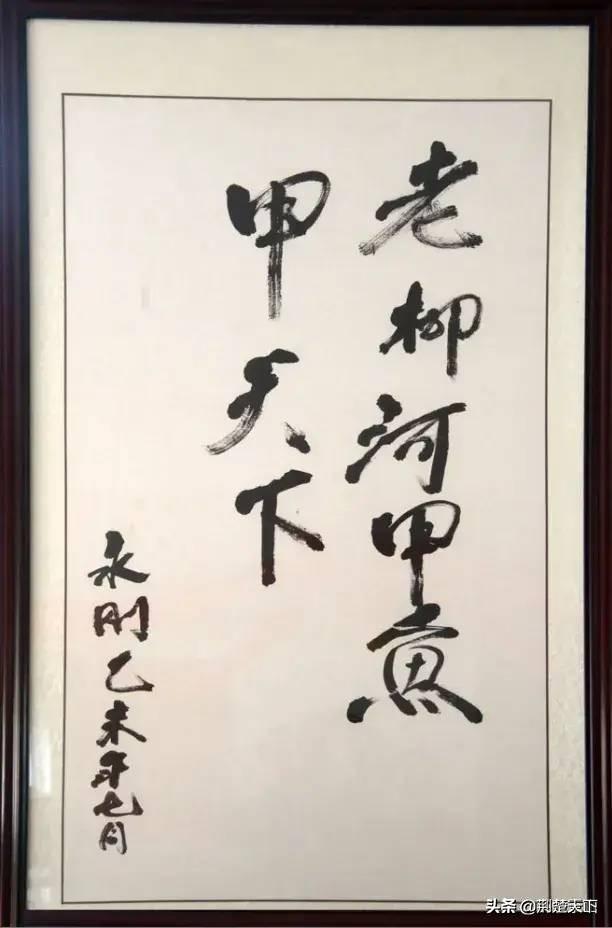 老柳河甲鱼
甲天下
永刚乙未年七月
头条 @荆楚天下